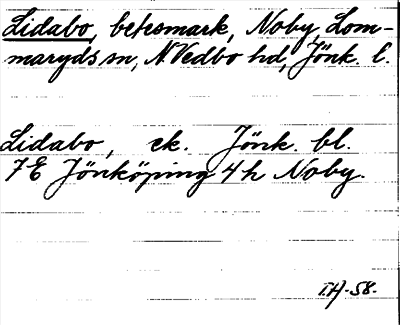 Lidabo, betesmark, Noby, Lom-
maryds sn, N. Vedbo hd, Jönk. l.
Lidabo, ek. Jönk. bl.
7 E Jönköping 4 h Noby.
T.H-58.